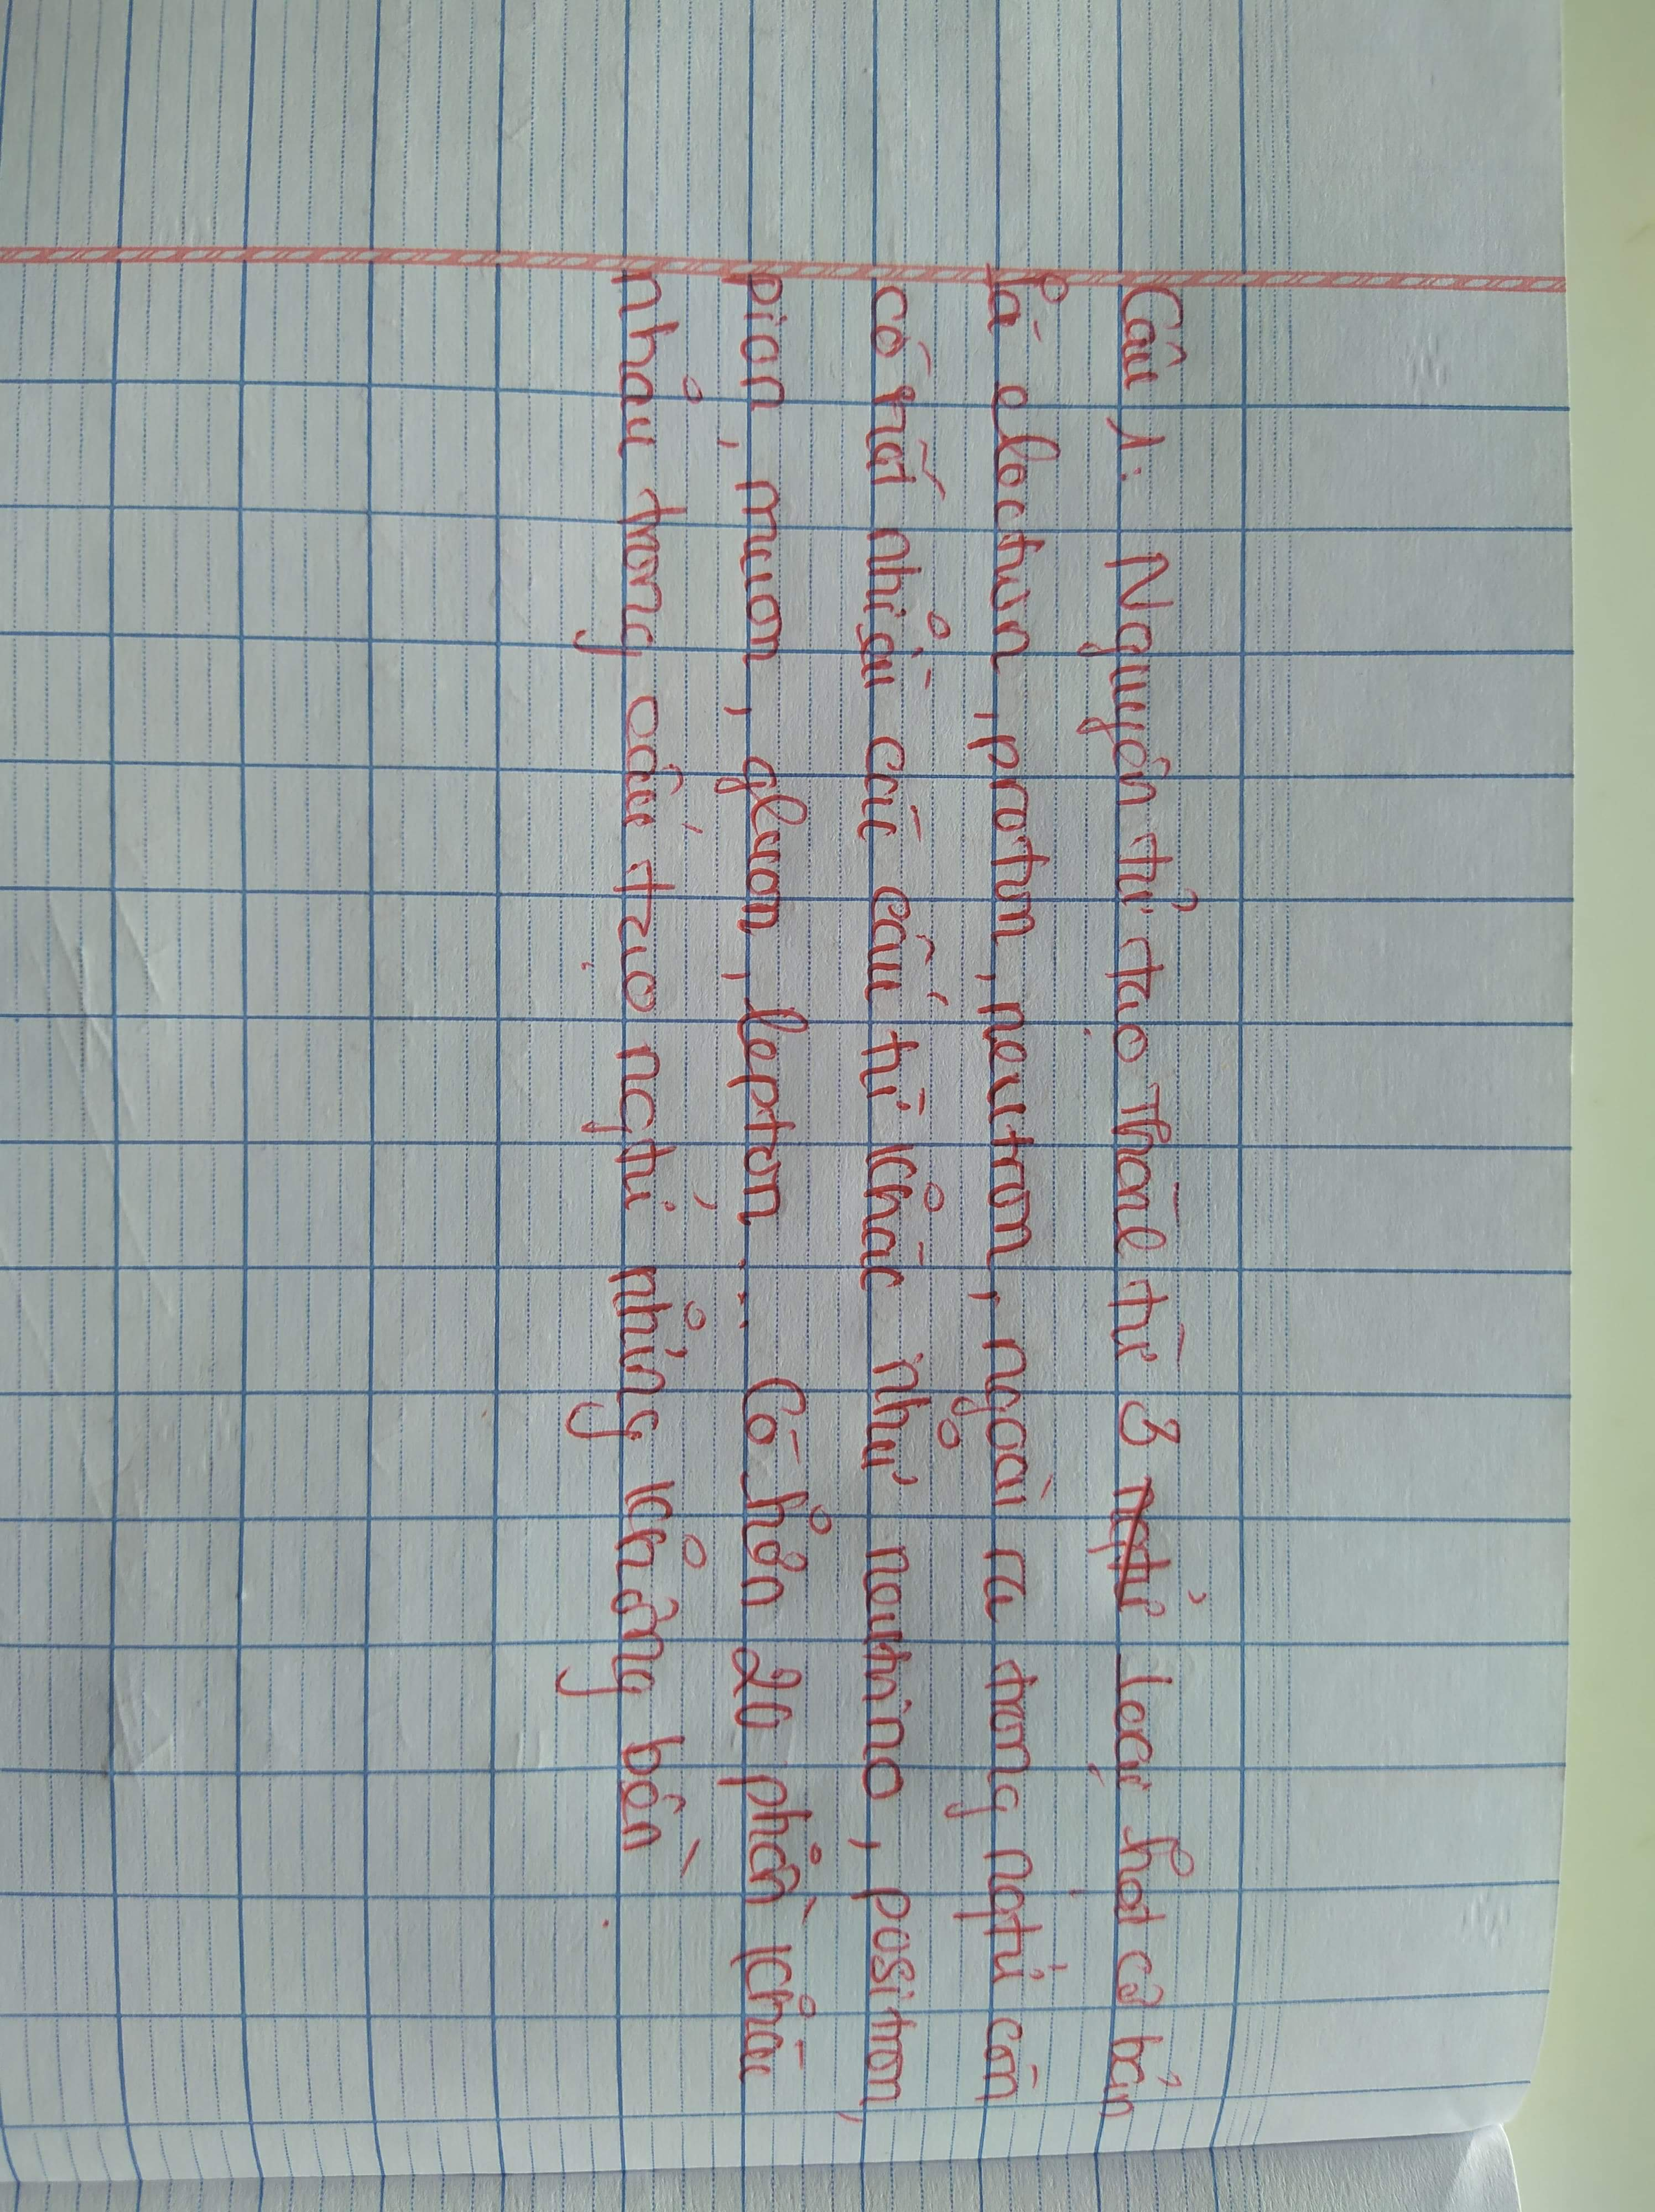 Câu 1: Nguyên tử tạo thành từ 3 loại hạt cơ bản
là electron, proton, neutron, ngoài ra trong ngtử còn
có rất nhiều các cấu tử khác như neutrino, positron,
pion, muon, gluon, lepton... Có hơn 20 phần khác
nhau trong cấu tạo ngtử nhưng không bền